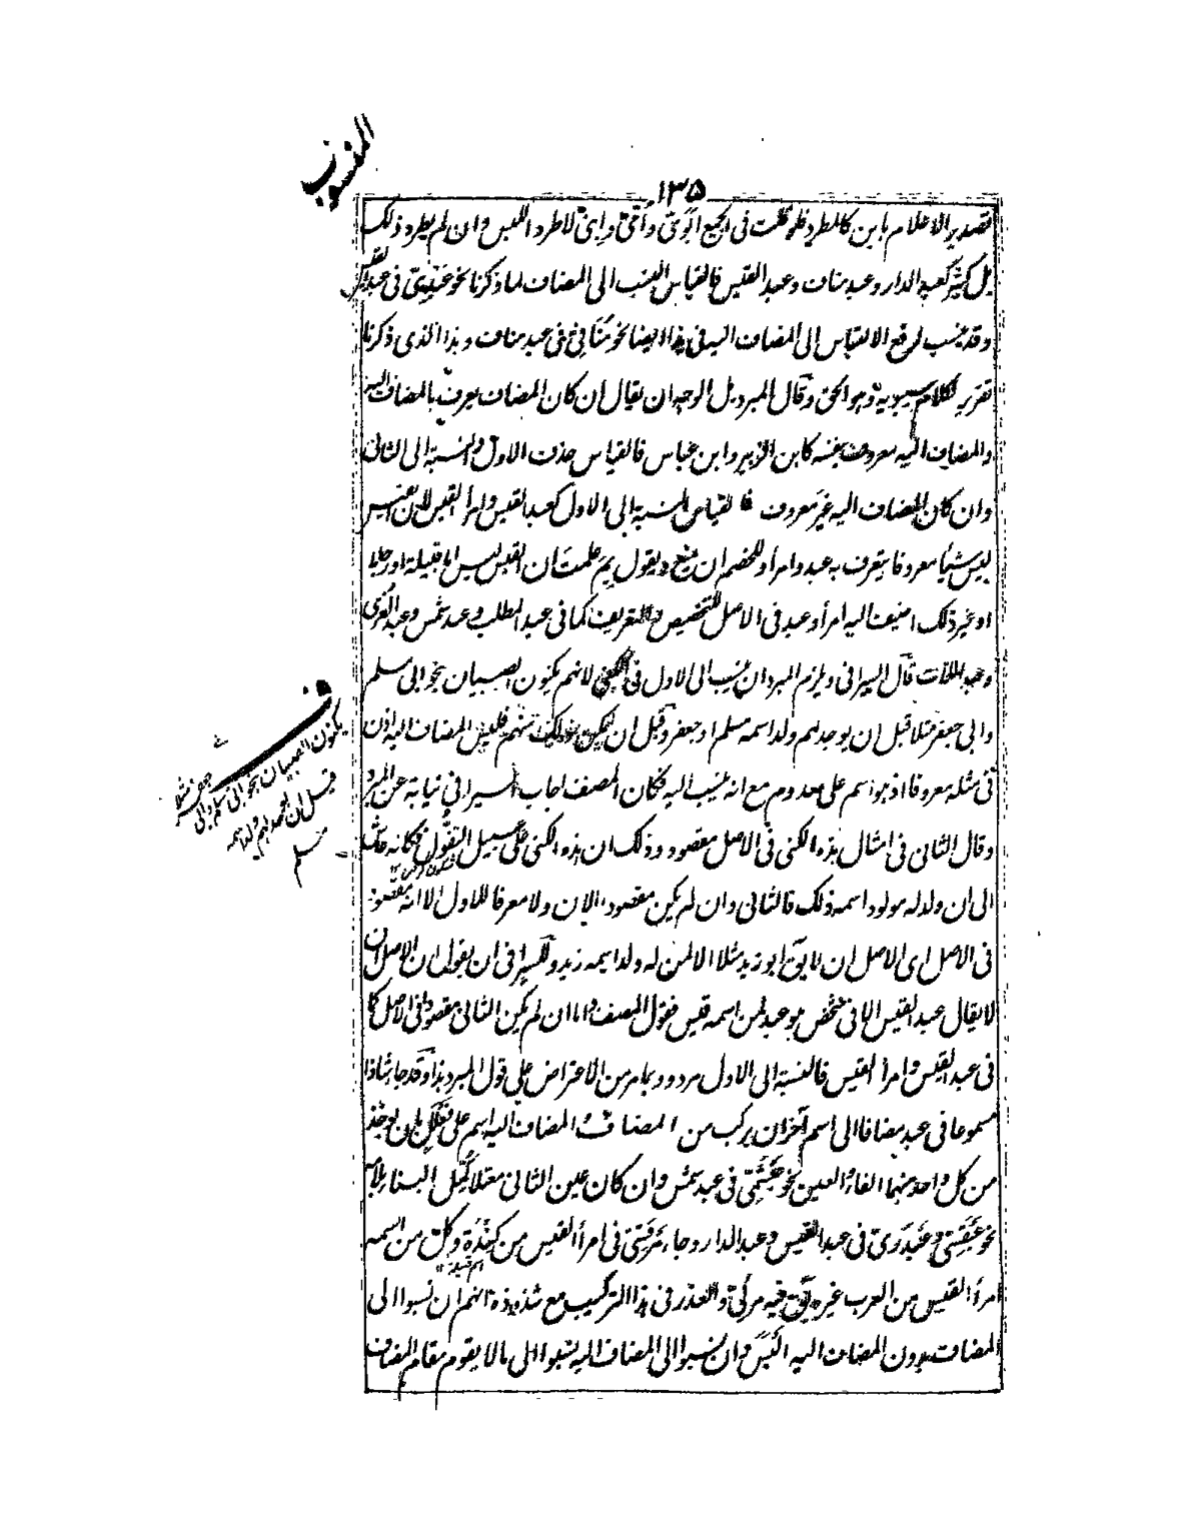 المنسوب
١٣٥
تصدير الاعلام بابن كالمطرد فلو قلت فى الجميع ابوىّ وأمّىّ وابنىّ لاطرد اللبس وان لم يطرد ذلك
بل كثر كعبد الدار وعبد مناف وعبد القيس فالقياس النسب الى المضاف لما ذكرنا نحو عبدىّ فى عبد القيس
وقد ينسب لرفع الالتباس الى المضاف اليه فى هذا ايضا نحو منافىّ فى عبد مناف وهذا الذى ذكرنا
تقرير كلام سيبويه وهو الحق وقال المبرد بل الوجه ان يقال ان كان المضاف يعرف بالمضاف اليه
والمضاف اليه معروف بنفسه كابن الزبير وابن عباس فالقياس حذف الاول والنسبة الى الثانى
وان كان المضاف اليه غير معروف فالقياس النسبة الى الاول كعبد القيس وامرأ القيس لان القيس
ليس شيئا معروفا يتعرف به عبد وامرأ وللخصم ان يمنع ويقول بم علمت ان القيس ليس اما قبيلة او رجلا
او غير ذلك اضيف اليه امرأ وعبد فى الاصل للتخصيص والتعريف كما فى عبد المطلب وعبد شمس وعبد العزى
وعبد اللات قال السيرافى ويلزم المبرد ان ينسب الى الاول فى الكنى لانهم يكنون الصبيان بنحو ابى مسلم
وابى جعفر مثلا قبل ان يوجد لهم ولد اسمه مسلم او جعفر وقبل ان يمكن ذلك منهم فليس المضاف اليه اذن
فى مثله معروفا اذ هو اسم على معدوم مع انه ينسب اليه فكان المصنف اجاب السيرافى نيابة عن المبرد
وقال الثانى فى امثال هذه الكنى فى الاصل مقصود وذلك ان هذه الكنى على سبيل التفؤل فكانه عاش
الى ان ولد له مولود اسمه ذلك فالثانى وان لم يكن مقصودا الان ولا معرفا للاول الا انه مقصود
فى الاصل اى الاصل ان لا يق ابو زيد مثلا الا لمن له ولد اسمه زيد وللسيرافى ان يقول ان الاصل ان
لا يقال عبد القيس الا فى شخص هو عبد لمن اسمه قيس فقول المصنف واما ان لم يكن الثانى مقصودا فى الاصل كما
فى عبد القيس وامرأ القيس فالنسبة الى الاول مردود بما مر من الاعتراض على قول المبرد هذا وقد جاء شاذا
مسموعا فى عبد مضافا الى اسم آخر ان يركب من المضاف والمضاف اليه اسم على فعلل بان يؤخذ
من كل واحد منهما الفاء والعين نحو عبشمىّ فى عبد شمس وان كان عين الثانى معتلا كمل البناء بلامه
نحو عبقسىّ وعبدرىّ فى عبد القيس وعبد الدار وجاء مرقسىّ فى امرأ القيس من كندة وكل من اسمه
امرأ القيس من العرب غيره يق فيه مرئىّ والعذر فى هذا التركيب مع شذوذه انهم ان نسبوا الى
المضاف بدون المضاف اليه التبس وان نسبوا الى المضاف اليه نسبوا الى ما لا يقوم مقام المضاف
ف
يكنون الصبيان بنحو ابى مسلم وابى جعفر مثلا
قبل ان يوجد لهم ولد اسمه
مسلم